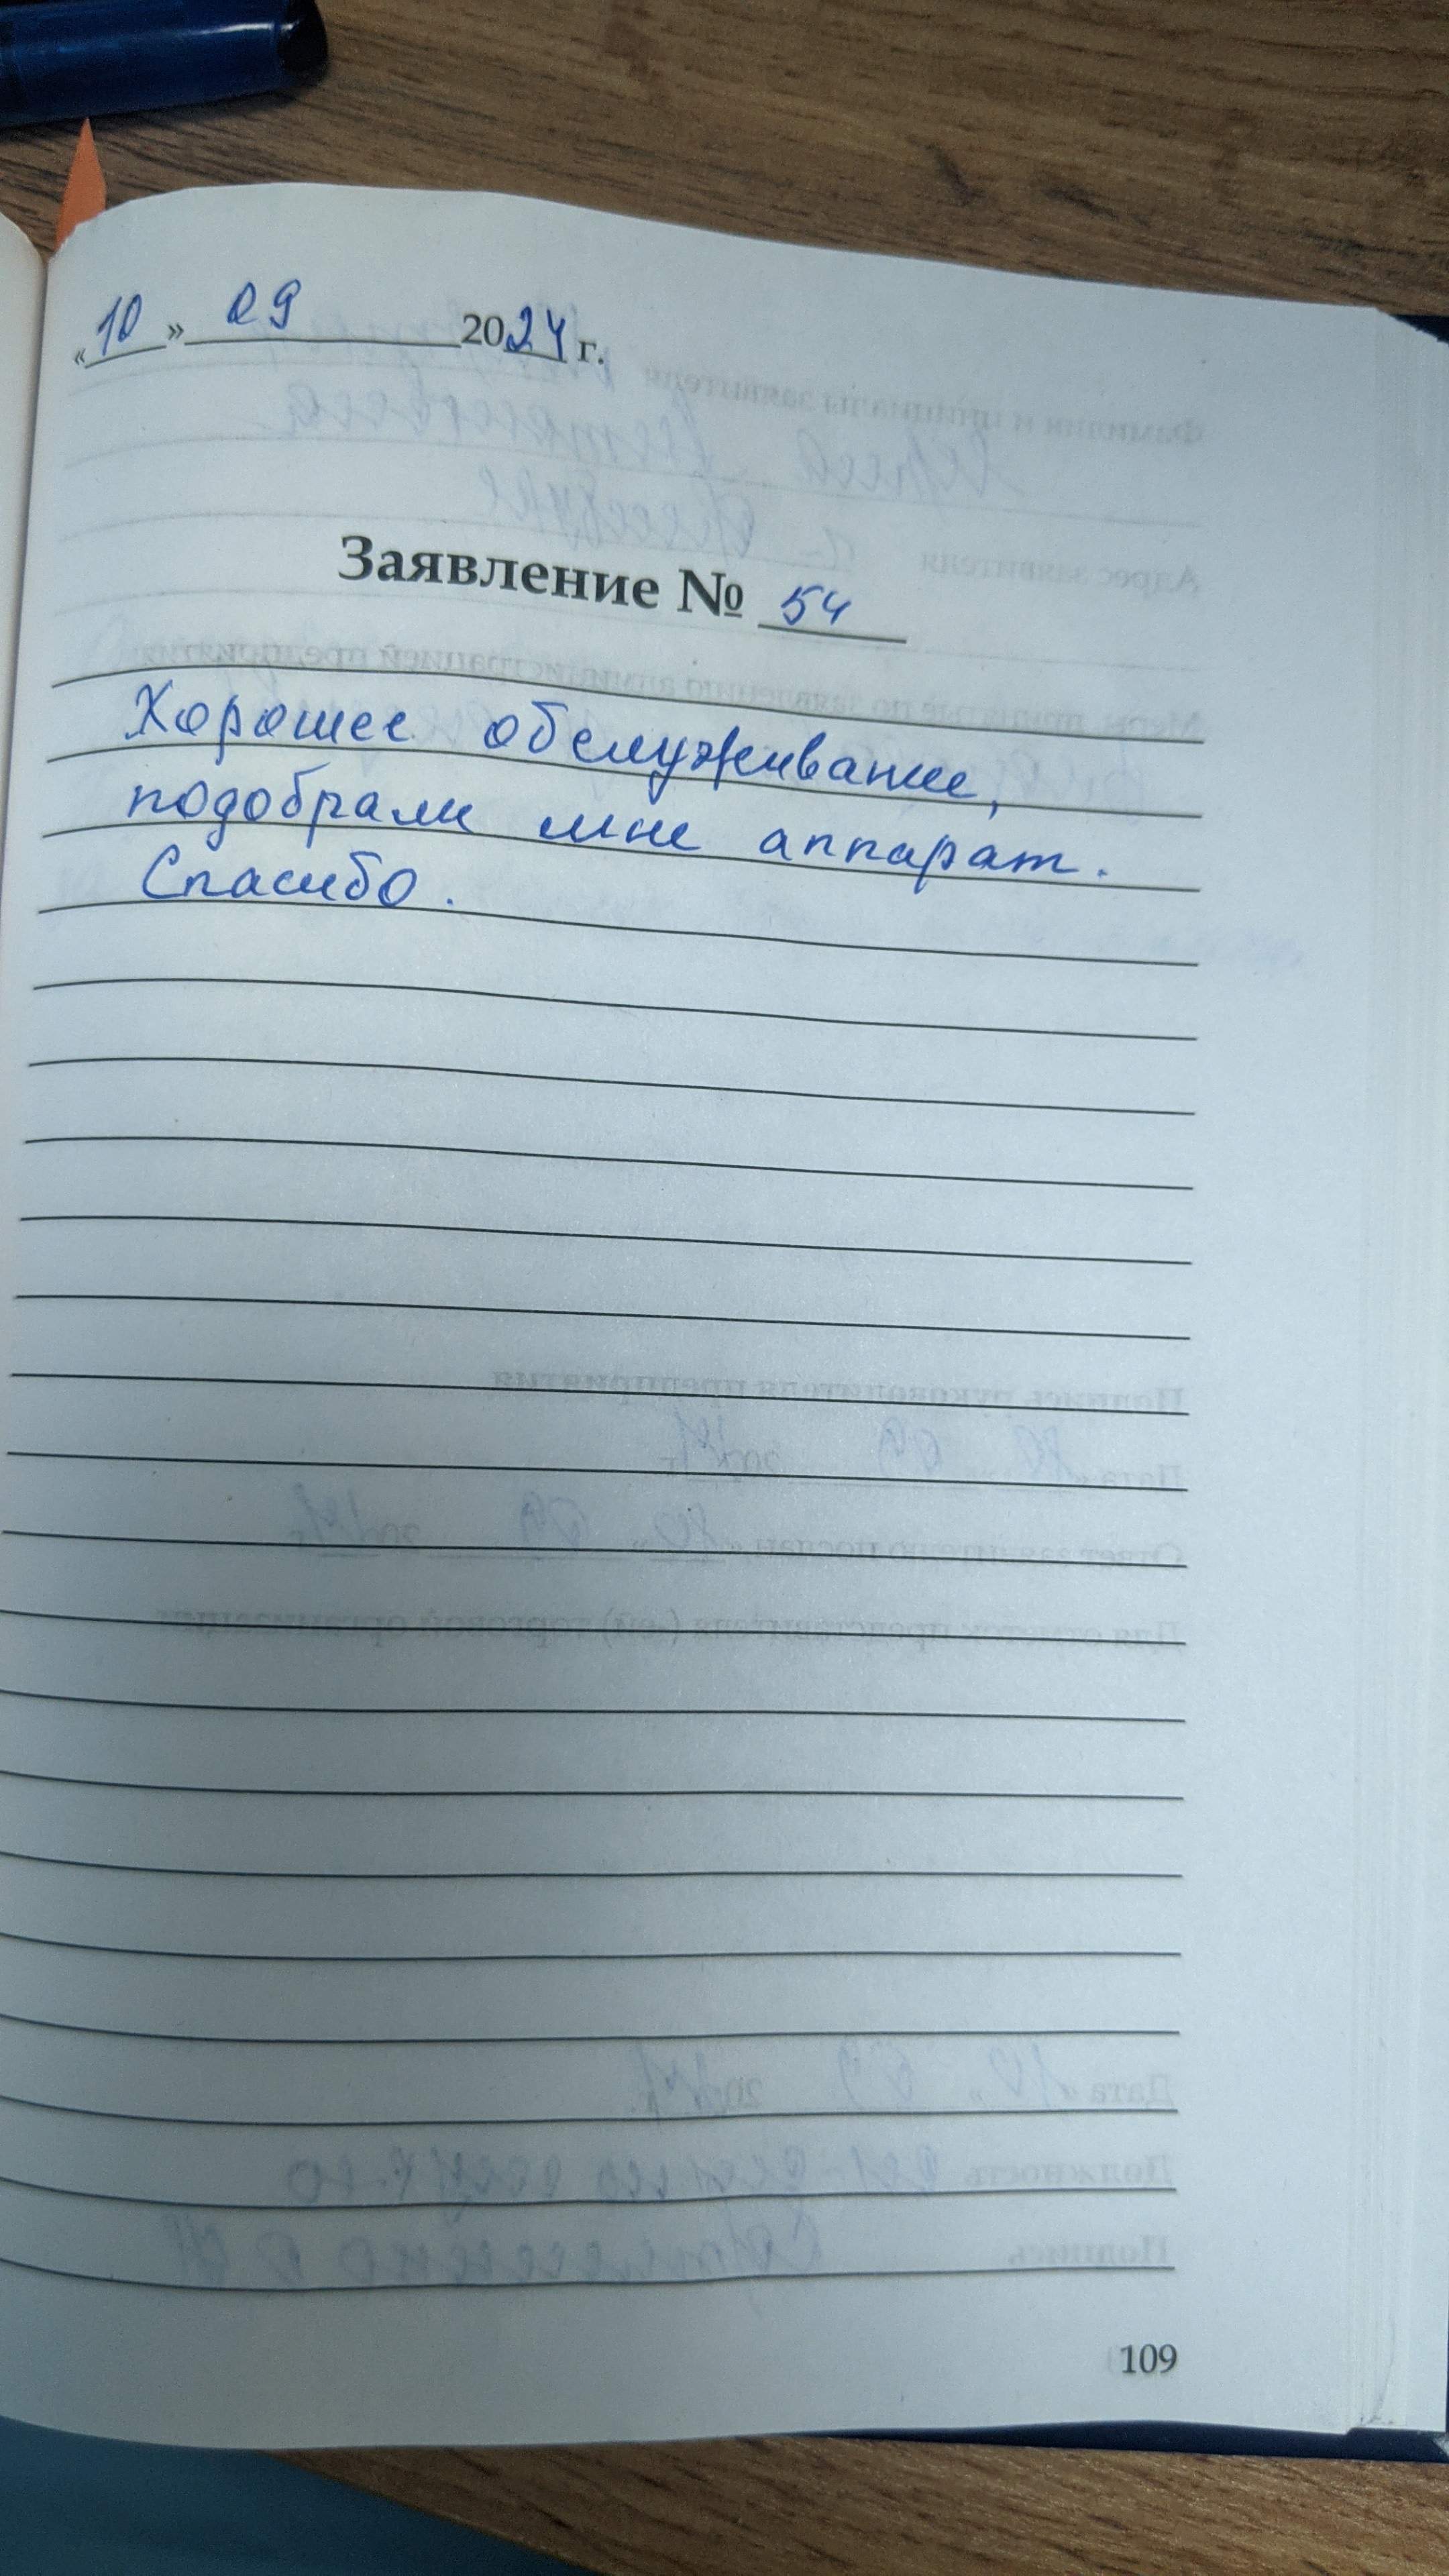 «10» 09 2024 г.
Заявление № 54
Хорошее обслуживание,
подобрали мне аппарат.
Спасибо.
109